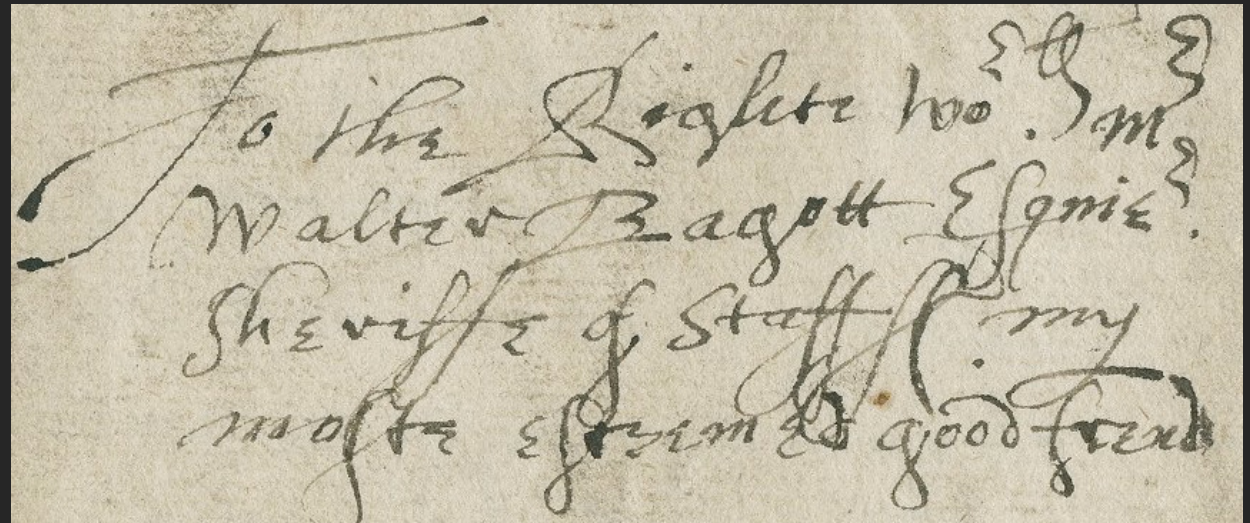 To the Righte wo: mr
Walter Bagott Esquier.
Sheriffe of Staff my
moste estemed good frend